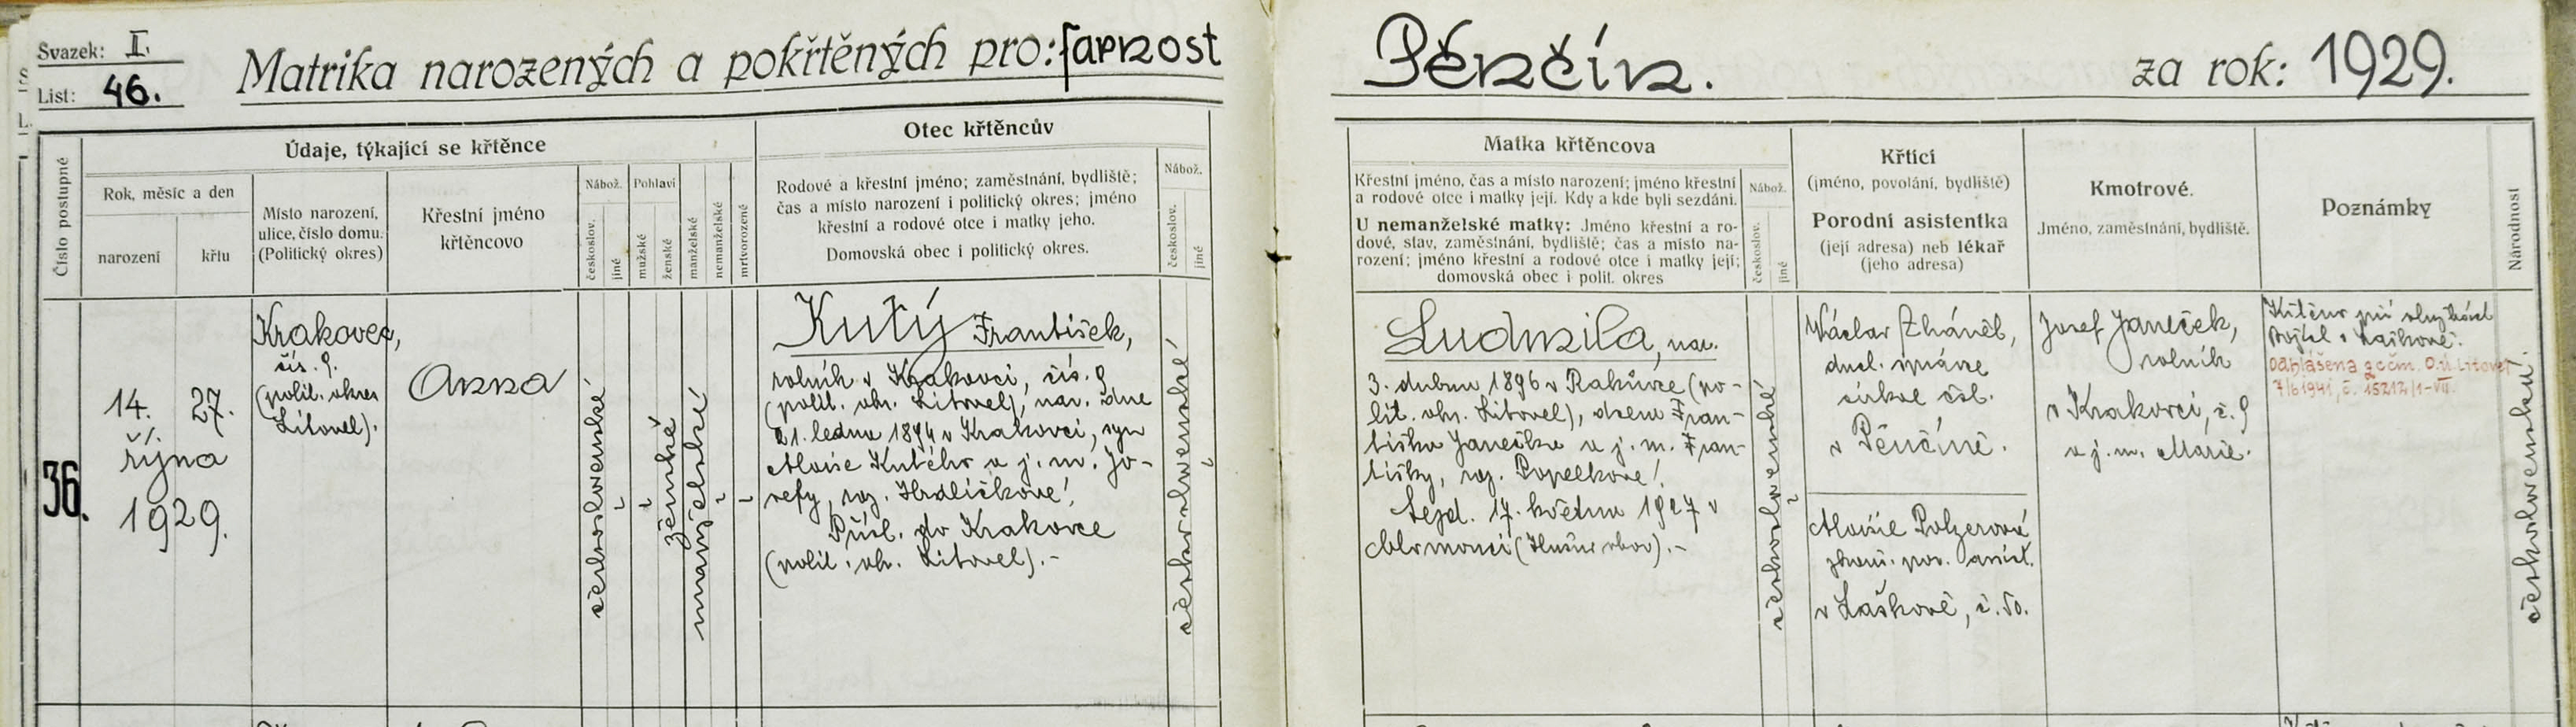 Svazek: I.
List: 46.
Matrika narozených a pokřtěných pro: farnost
Pěnčín.
za rok: 1929.
Číslo postupné
Údaje, týkající se křtěnce
Rok, měsíc a den
narození
křtu
Místo narození,
ulice, číslo domu.
(Politický okres)
Křestní jméno
křtěncovo
Nábož.
českoslov.
jiné
Pohlaví
mužské
ženské
manželské
nemanželské
mrtvorozené
Otec křtěncův
Rodové a křestní jméno; zaměstnání, bydliště;
čas a místo narození i politický okres; jméno
křestní a rodové otce i matky jeho.
Domovská obec i politický okres.
Nábož.
českoslov.
jiné
Matka křtěncova
Křestní jméno, čas a místo narození; jméno křestní
a rodové otce i matky její. Kdy a kde byli sezdáni.
U nemanželské matky: Jméno křestní a ro-
dové, stav, zaměstnání, bydliště; čas a místo na-
rození; jméno křestní a rodové otce i matky její;
domovská obec i polit. okres
Nábož.
českoslov.
jiné
Křtící
(jméno, povolání, bydliště)
Porodní asistentka
(její adresa) neb lékař
(jeho adresa)
Kmotrové.
Jméno, zaměstnání, bydliště.
Poznámky
Národnost
36.
14. 27.
října
1929.
Krakovec,
čís. 9.
(polit. okres
Litovel).
Anna
československé
ženské
manželské
Kutý František,
rolník v Krakovci, čís. 9
(polit. okr. Litovel), nar. dne
21. ledna 1894 v Krakovci, syn
Aloise Kutého a j. m. Jo-
sefy, roz. Hrdličkové.
Přísl. do Krakovce
(polit. okr. Litovel).-
československé
Ludmila, nar.
3. dubna 1896 v Rakůvce (po-
lit. okr. Litovel), dcera Fran-
tiška Janečka a j. m. Fran-
tišky, roz. Popelkové.
Sezd. 17. května 1927 v
Olomouci (Husův sbor).-
československé
Václav Zháněl,
duch. správce
církve čsl.
v Pěnčíně.
Aloisie Polzerová
zkouš. por. asist.
v Laškově, č. 50.
Josef Janeček,
rolník
v Krakovci, č. 9
a j. m. Marie.
Odhlášena Litovel
7/6 1941, č. 15212/1-VII.
československá.